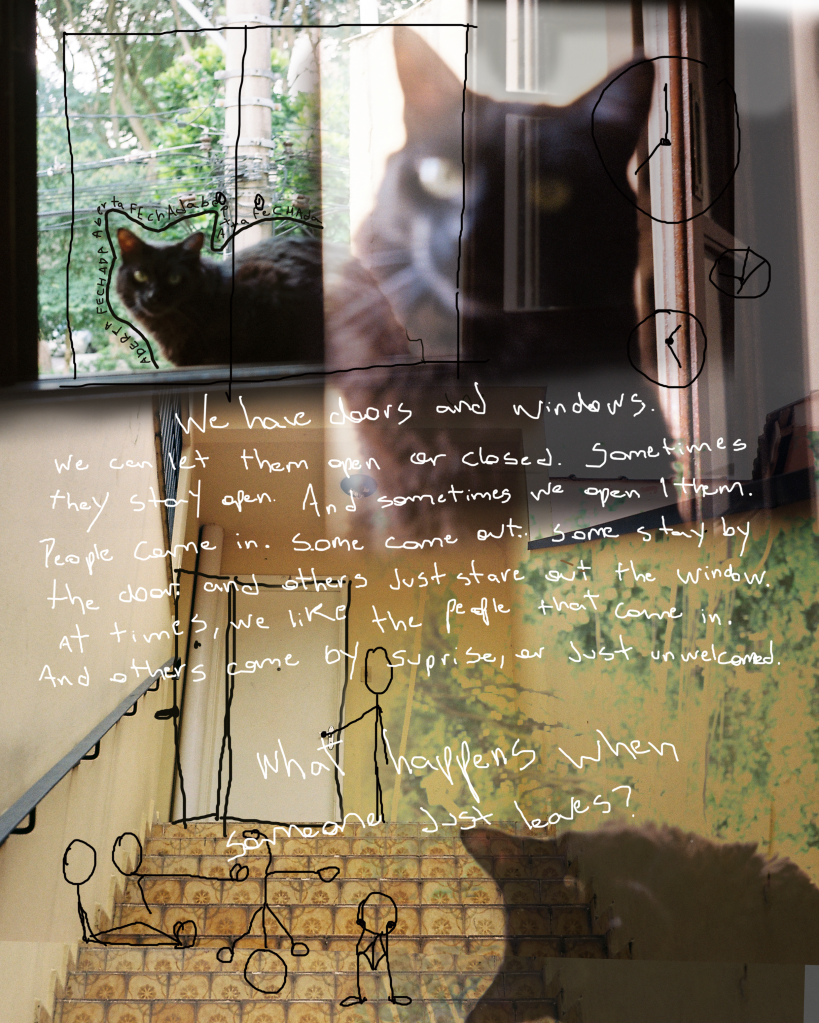 ABERTA FECHADA Aberta FEchAdA aberta FECHAda
We have doors and windows.
We can let them open or closed. Sometimes
they stay open. And sometimes we open them.
People come in. Some come out. Some stay by
the door and others Just stare out the window.
At times, we like the people that come in.
And others come by suprise, or Just unwelcomed.
What happens when
someone Just leaves?